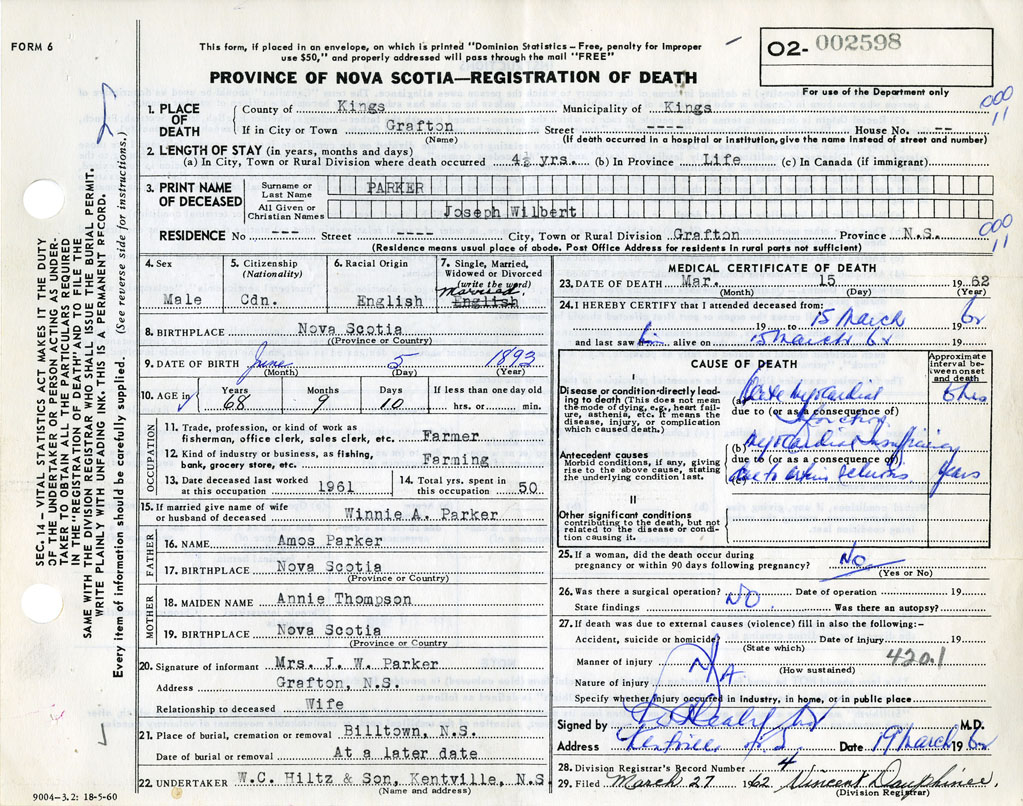 FORM 6
This form, if placed in an envelope, on which is printed "Dominion Statistics – Free, penalty for improper
use $50," and properly addressed will pass through the mail "FREE"
O2- 002598
For use of the Department only
PROVINCE OF NOVA SCOTIA—REGISTRATION OF DEATH
SEC. 14 – VITAL STATISTICS ACT MAKES IT THE DUTY
OF THE UNDERTAKER OR PERSON ACTING AS UNDER-
TAKER TO OBTAIN ALL THE PARTICULARS REQUIRED
IN THE "REGISTRATION OF DEATH" AND TO FILE THE
SAME WITH THE DIVISION REGISTRAR WHO SHALL ISSUE THE BURIAL PERMIT.
WRITE PLAINLY WITH UNFADING INK. THIS IS A PERMANENT RECORD.
Every item of information should be carefully supplied. (See reverse side for instructions.)
1. PLACE OF DEATH
County of Kings Municipality of Kings
000
11
If in City or Town Grafton Street ---- House No. --
(Name) (If death occurred in a hospital or institution, give the name instead of street and number)
2. LENGTH OF STAY (in years, months and days)
(a) In City, Town or Rural Division where death occurred 4½ yrs. (b) In Province Life (c) In Canada (if immigrant)
3. PRINT NAME OF DECEASED
Surname or Last Name PARKER
All Given or Christian Names Joseph Wilbert
RESIDENCE No --- Street ---- City, Town or Rural Division Grafton Province N.S.
000
11
(Residence means usual place of abode. Post Office Address for residents in rural parts not sufficient)
4. Sex 5. Citizenship (Nationality) 6. Racial Origin 7. Single, Married, Widowed or Divorced (write the word)
Male Cdn. English Married English
8. BIRTHPLACE Nova Scotia
(Province or Country)
9. DATE OF BIRTH June 5 1893
(Month) (Day) (Year)
10. AGE in Years Months Days If less than one day old
68 9 10 hrs. or min.
OCCUPATION
11. Trade, profession, or kind of work as
fisherman, office clerk, sales clerk, etc. Farmer
12. Kind of industry or business, as fishing,
bank, grocery store, etc. Farming
13. Date deceased last worked at this occupation 1961 14. Total yrs. spent in this occupation 50
15. If married give name of wife
or husband of deceased Winnie A. Parker
FATHER
16. NAME Amos Parker
17. BIRTHPLACE Nova Scotia
(Province or Country)
MOTHER
18. MAIDEN NAME Annie Thompson
19. BIRTHPLACE Nova Scotia
(Province or Country
20. Signature of informant Mrs. J. W. Parker
Address Grafton, N.S.
Relationship to deceased Wife
21. Place of burial, cremation or removal Billtown, N.S.
Date of burial or removal At a later date
22. UNDERTAKER W.C. Hiltz & Son, Kentville, N.S
(Name and address)
9004-3.2: 18-5-60
MEDICAL CERTIFICATE OF DEATH
23. DATE OF DEATH Mar. 15 1962
(Month) (Day) (Year)
24. I HEREBY CERTIFY that I attended deceased from:
19 to 15 March 19 62
and last saw him alive on 15 March 62 19
CAUSE OF DEATH
Approximate interval between onset and death
I
Disease or condition directly leading to death (This does not mean the mode of dying, e.g., heart failure, asthenia, etc. It means the disease, injury, or complication which caused death.)
(a) Acute Myocardial 6 hrs
due to (or as a consequence of)
Infarction
(b) Myocardial Insufficiency
Antecedent causes
Morbid conditions, if any, giving rise to the above cause, stating the underlying condition last.
due to (or as a consequence of)
due to Years
II
Other significant conditions
contributing to the death, but not related to the disease or condition causing it.
25. If a woman, did the death occur during
pregnancy or within 90 days following pregnancy? No
(Yes or No)
26. Was there a surgical operation? NO Date of operation 19
State findings Was there an autopsy?
27. If death was due to external causes (violence) fill in also the following:–
Accident, suicide or homicide Date of injury 19
(State which)
420.1
Manner of injury N/A
(How sustained)
Nature of injury
Specify whether injury occurred in industry, in home, or in public place
Signed by M.D.
Address Kentville N.S. Date 19 March 1962
28. Division Registrar's Record Number 4
29. Filed March 27 1962 Vincent Dauphinee
(Division Registrar)